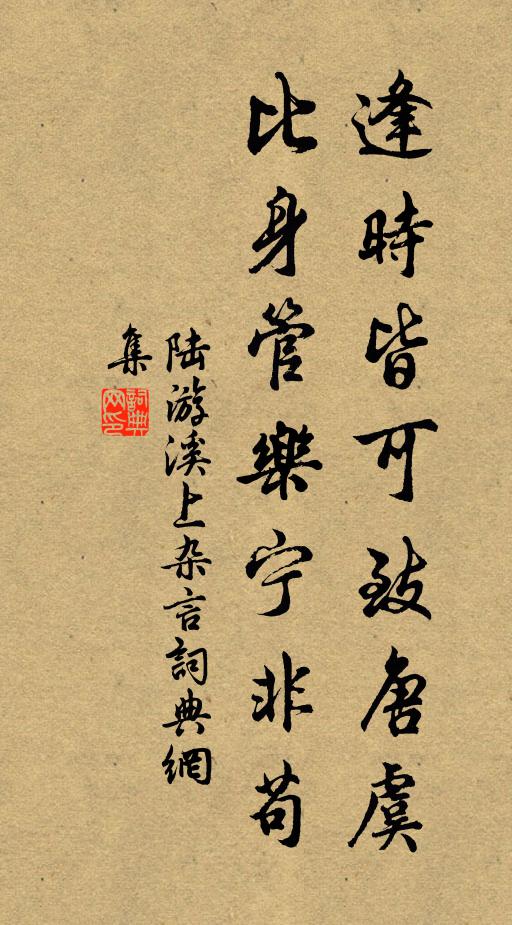 逢時皆可致唐虞
比身管樂宁非苟
陆游溪上杂言詞典網
集
詞典
网印